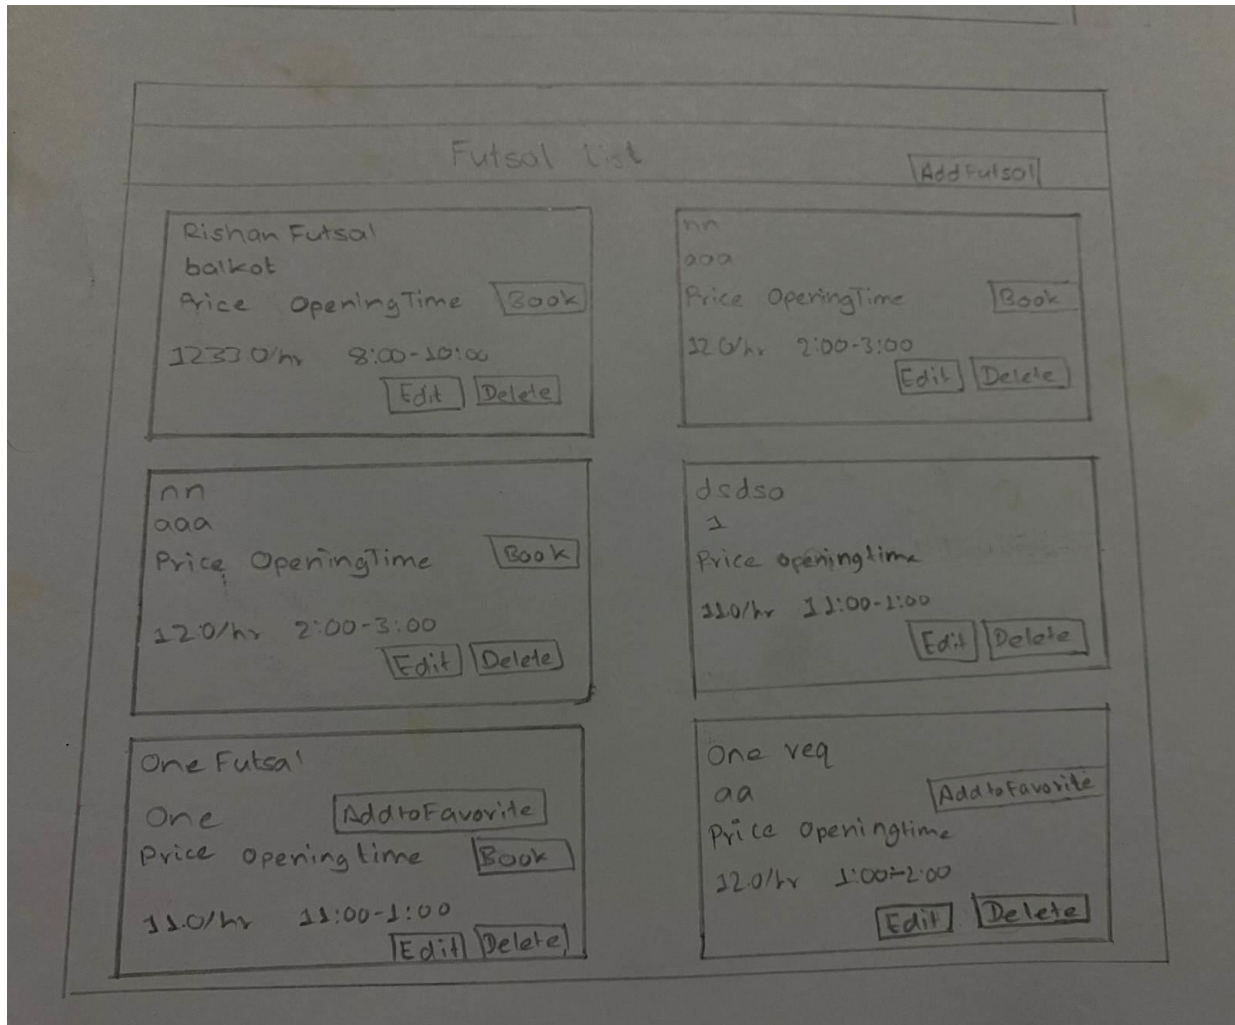 Futsal List
AddFutsal
Rishan Futsal
balkot
Price OpeningTime Book
1233.0/hr 8:00-10:00
Edit Delete
nn
aaa
Price OpeningTime Book
12.0/hr 2:00-3:00
Edit Delete
nn
aaa
Price OpeningTime Book
12.0/hr 2:00-3:00
Edit Delete
dsdsa
1
Price openingtime
11.0/hr 11:00-1:00
Edit Delete
One Futsal
One AddtoFavorite
Price openingtime Book
11.0/hr 11:00-1:00
Edit Delete
One req
aa AddtoFavorite
Price Openingtime
12.0/hr 1:00-2:00
Edit Delete